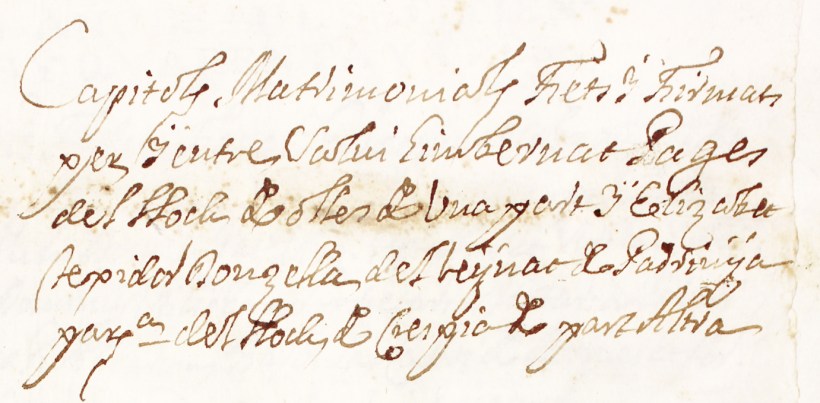 Capitols Matrimonials Fets Y Firmats
per Y entre Salui Gimbernat Pages
del lloch de olles de Una part Y Elizabet
texidor Donzella del Veynat de Padrinya
parª del lloch de de part Altra